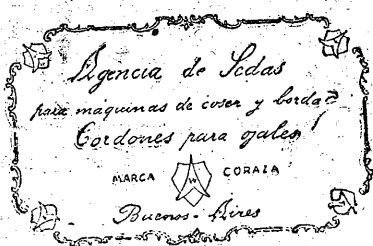 Agencia de Sedas
para máquinas de coser y bordar
Cordones para ojales
MARCA W CORAZA
Buenos-Aires